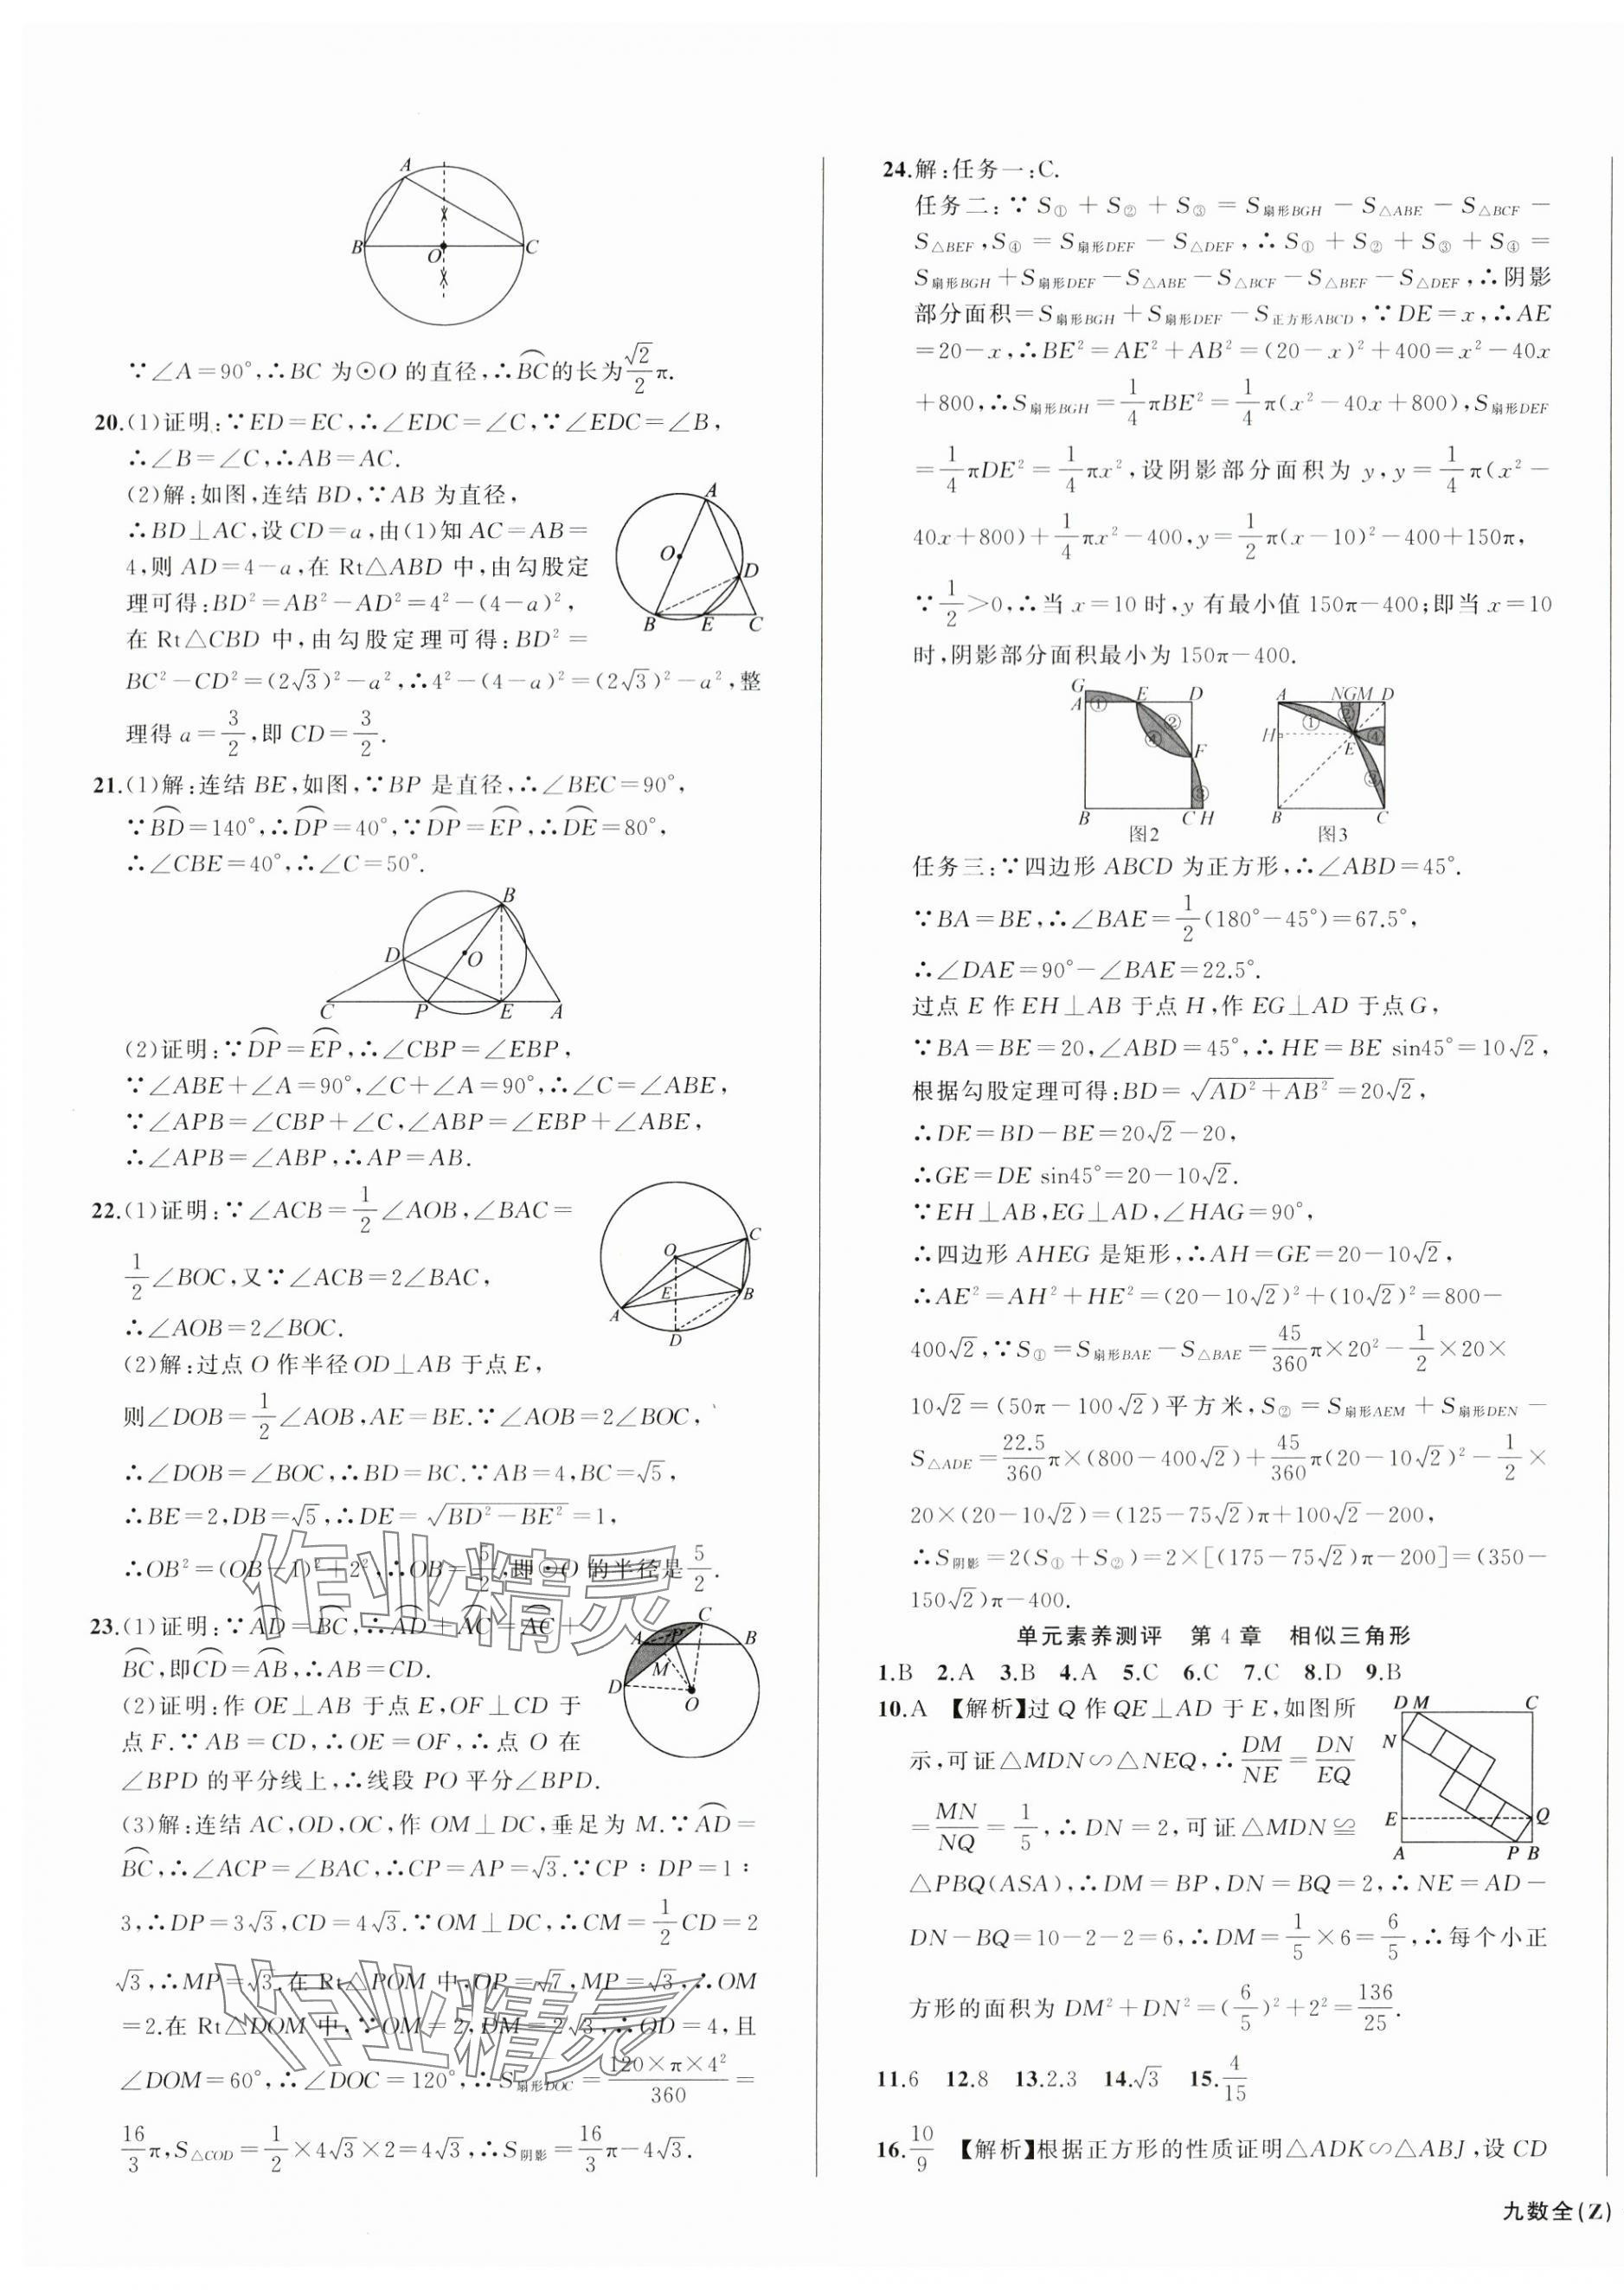 A
B
O
C
∵∠A=90°,∴BC 为⊙O 的直径,∴$\overset{\frown}{BC}$的长为$\frac{\sqrt{2}}{2}$π.
20.(1)证明:∵ED=EC,∴∠EDC=∠C,∵∠EDC=∠B,
∴∠B=∠C,∴AB=AC.
(2)解:如图,连结 BD,∵AB 为直径,
∴BD⊥AC,设 CD=a,由(1)知 AC=AB=
4,则 AD=4-a,在 Rt△ABD 中,由勾股定
理可得:BD²=AB²-AD²=4²-(4-a)²,
在 Rt△CBD 中,由勾股定理可得:BD²=
BC²-CD²=(2√3)²-a²,∴4²-(4-a)²=(2√3)²-a²,整
理得 a=$\frac{3}{2}$,即 CD=$\frac{3}{2}$.
A
O
D
B E C
21.(1)解:连结 BE,如图,∵BP 是直径,∴∠BEC=90°,
∵$\overset{\frown}{BD}$=140°,∴$\overset{\frown}{DP}$=40°,∵$\overset{\frown}{DP}$=$\overset{\frown}{EP}$,∴$\overset{\frown}{DE}$=80°,
∴∠CBE=40°,∴∠C=50°.
B
D
O
C P E A
(2)证明:∵$\overset{\frown}{DP}$=$\overset{\frown}{EP}$,∴∠CBP=∠EBP,
∵∠ABE+∠A=90°,∠C+∠A=90°,∴∠C=∠ABE,
∵∠APB=∠CBP+∠C,∠ABP=∠EBP+∠ABE,
∴∠APB=∠ABP,∴AP=AB.
22.(1)证明:∵∠ACB=$\frac{1}{2}$∠AOB,∠BAC=
$\frac{1}{2}$∠BOC,又∵∠ACB=2∠BAC,
∴∠AOB=2∠BOC.
(2)解:过点 O 作半径OD⊥AB 于点 E,
则∠DOB=$\frac{1}{2}$∠AOB,AE=BE.∵∠AOB=2∠BOC,
∴∠DOB=∠BOC,∴BD=BC.∵AB=4,BC=√5,
∴BE=2,DB=√5,∴DE=$\sqrt{BD²-BE²}$=1,
∴OB²=(OB-1)²+2²,∴OB=$\frac{5}{2}$,即⊙O 的半径是$\frac{5}{2}$.
C
O
E
B
A
D
23.(1)证明:∵$\overset{\frown}{AD}$=$\overset{\frown}{BC}$,∴$\overset{\frown}{AD}$+$\overset{\frown}{AC}$=$\overset{\frown}{AC}$+
$\overset{\frown}{BC}$,即$\overset{\frown}{CD}$=$\overset{\frown}{AB}$,∴AB=CD.
(2)证明:作 OE⊥AB 于点 E,OF⊥CD 于
点 F.∵AB=CD,∴OE=OF,∴点 O 在
∠BPD 的平分线上,∴线段 PO 平分∠BPD.
(3)解:连结 AC,OD,OC,作 OM⊥DC,垂足为 M.∵$\overset{\frown}{AD}$=
$\overset{\frown}{BC}$,∴∠ACP=∠BAC,∴CP=AP=√3.∵CP∶DP=1∶
3,∴DP=3√3,CD=4√3.∵OM⊥DC,∴CM=$\frac{1}{2}$CD=2
√3,∴MP=√3.在 Rt△POM 中,OP=√7,MP=√3,∴OM
=2.在 Rt△DOM 中,∵OM=2,DM=2√3,∴OD=4,且
∠DOM=60°,∴∠DOC=120°,∴S扇形DOC=$\frac{120×π×4²}{360}$=
$\frac{16}{3}$π,S△COD=$\frac{1}{2}$×4√3×2=4√3,∴S阴影=$\frac{16}{3}$π-4√3.
C
A P B
M
D
O
作业精灵
作业精灵
24.解:任务一:C.
任务二:∵S①+S②+S③=S扇形BGH-S△ABE-S△BCF-
S△BEF,S④=S扇形DEF-S△DEF,∴S①+S②+S③+S④=
S扇形BGH+S扇形DEF-S△ABE-S△BCF-S△BEF-S△DEF,∴阴影
部分面积=S扇形BGH+S扇形DEF-S正方形ABCD,∵DE=x,∴AE
=20-x,∴BE²=AE²+AB²=(20-x)²+400=x²-40x
+800,∴S扇形BGH=$\frac{1}{4}$πBE²=$\frac{1}{4}$π(x²-40x+800),S扇形DEF
=$\frac{1}{4}$πDE²=$\frac{1}{4}$πx²,设阴影部分面积为 y,y=$\frac{1}{4}$π(x²-
40x+800)+$\frac{1}{4}$πx²-400,y=$\frac{1}{2}$π(x-10)²-400+150π,
∵$\frac{1}{2}$>0,∴当 x=10 时,y 有最小值 150π-400;即当 x=10
时,阴影部分面积最小为 150π-400.
G E D
A ①
②
④
F
③
B C H
图2
A NGM D
① ②
H
④
E
③
B C
图3
任务三:∵四边形 ABCD 为正方形,∴∠ABD=45°.
∵BA=BE,∴∠BAE=$\frac{1}{2}$(180°-45°)=67.5°,
∴∠DAE=90°-∠BAE=22.5°.
过点 E 作 EH⊥AB 于点 H,作 EG⊥AD 于点G,
∵BA=BE=20,∠ABD=45°,∴HE=BE sin45°=10√2,
根据勾股定理可得:BD=$\sqrt{AD²+AB²}$=20√2,
∴DE=BD-BE=20√2-20,
∴GE=DE sin45°=20-10√2.
∵EH⊥AB,EG⊥AD,∠HAG=90°,
∴四边形 AHEG 是矩形,∴AH=GE=20-10√2,
∴AE²=AH²+HE²=(20-10√2)²+(10√2)²=800-
400√2,∵S①=S扇形BAE-S△BAE=$\frac{45}{360}$π×20²-$\frac{1}{2}$×20×
10√2=(50π-100√2)平方米,S②=S扇形AEM+S扇形DEN-
S△ADE=$\frac{22.5}{360}$π×(800-400√2)+$\frac{45}{360}$π(20-10√2)²-$\frac{1}{2}$×
20×(20-10√2)=(125-75√2)π+100√2-200,
∴S阴影=2(S①+S②)=2×[(175-75√2)π-200]=(350-
150√2)π-400.
单元素养测评 第 4 章 相似三角形
1.B 2.A 3.B 4.A 5.C 6.C 7.C 8.D 9.B
10.A 【解析】过 Q 作 QE⊥AD 于 E,如图所
示,可证△MDN∽△NEQ,∴$\frac{DM}{NE}$=$\frac{DN}{EQ}$
=$\frac{MN}{NQ}$=$\frac{1}{5}$,∴DN=2,可证△MDN≌
△PBQ(ASA),∴DM=BP,DN=BQ=2,∴NE=AD-
DN-BQ=10-2-2=6,∴DM=$\frac{1}{5}$×6=$\frac{6}{5}$,∴每个小正
方形的面积为 DM²+DN²=($\frac{6}{5}$)²+2²=$\frac{136}{25}$.
D M C
N
E Q
A P B
11.6 12.8 13.2.3 14.√3 15.$\frac{4}{15}$
16.$\frac{10}{9}$ 【解析】根据正方形的性质证明△ADK∽△ABJ,设 CD
九数全(Z)